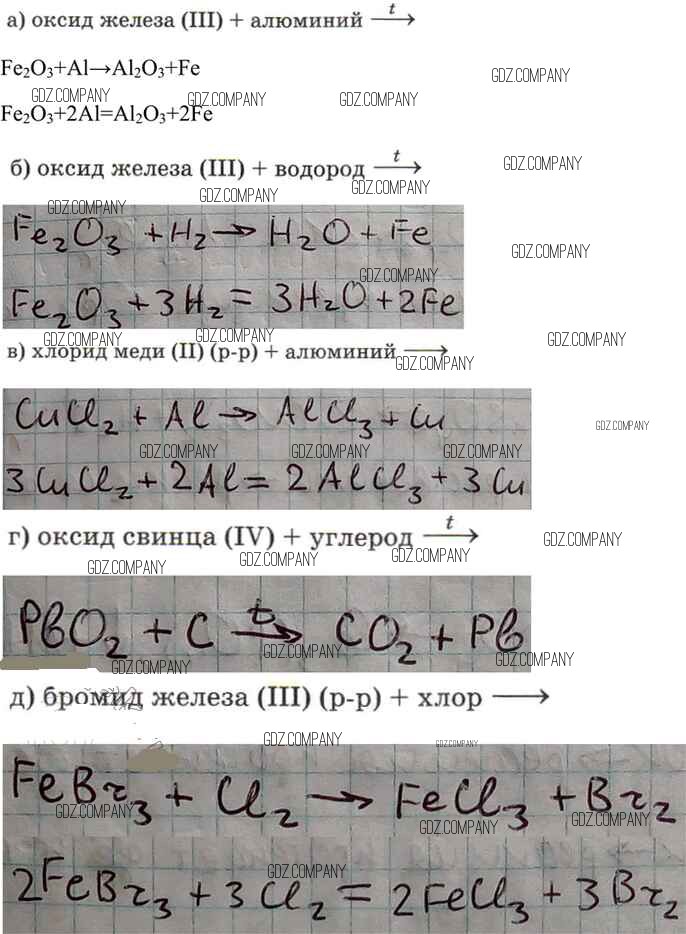 а) оксид железа (III) + алюминий t→
Fe₂O₃+Al→Al₂O₃+Fe
GDZ.COMPANY
GDZ.COMPANY GDZ.COMPANY GDZ.COMPANY
Fe₂O₃+2Al=Al₂O₃+2Fe
б) оксид железа (III) + водород t→
GDZ.COMPANY
GDZ.COMPANY GDZ.COMPANY GDZ.COMPANY
Fe₂O₃ + H₂ → H₂O + Fe
GDZ.COMPANY
GDZ.COMPANY
Fe₂O₃ + 3H₂ = 3H₂O + 2Fe
GDZ.COMPANY GDZ.COMPANY GDZ.COMPANY
в) хлорид меди (II) (р-р) + алюминий →
GDZ.COMPANY
CuCl₂ + Al → AlCl₃ + Cu
GDZ.COMPANY
GDZ.COMPANY GDZ.COMPANY GDZ.COMPANY
3CuCl₂ + 2Al = 2AlCl₃ + 3Cu
г) оксид свинца (IV) + углерод t→
GDZ.COMPANY
GDZ.COMPANY GDZ.COMPANY GDZ.COMPANY
PbO₂ + C t→ CO₂ + Pb
GDZ.COMPANY GDZ.COMPANY GDZ.COMPANY
д) бромид железа (III) (р-р) + хлор →
GDZ.COMPANY GDZ.COMPANY
FeBr₃ + Cl₂ → FeCl₃ + Br₂
GDZ.COMPANY GDZ.COMPANY GDZ.COMPANY
GDZ.COMPANY
2FeBr₃ + 3Cl₂ = 2FeCl₃ + 3Br₂